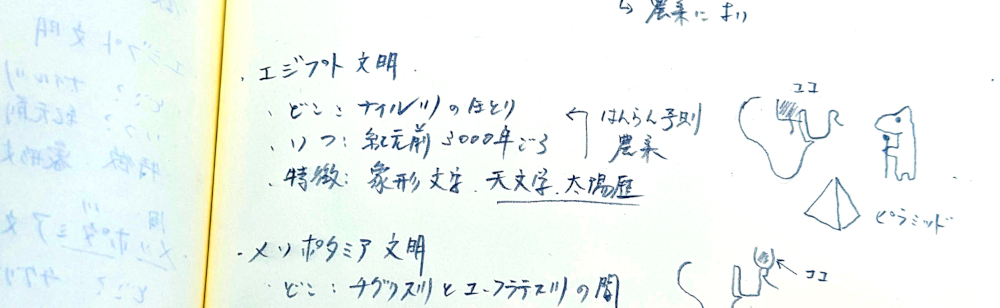 ↳ 農業により
・エジプト文明
・どこ：ナイル川のほとり
・いつ：紀元前3000年ごろ
・特徴：象形文字、天文学、太陽歴
はんらん予則
農業
ココ
ピラミッド
・メソポタミア文明
・どこ：チグリス川とユーフラテス川の間
ココ